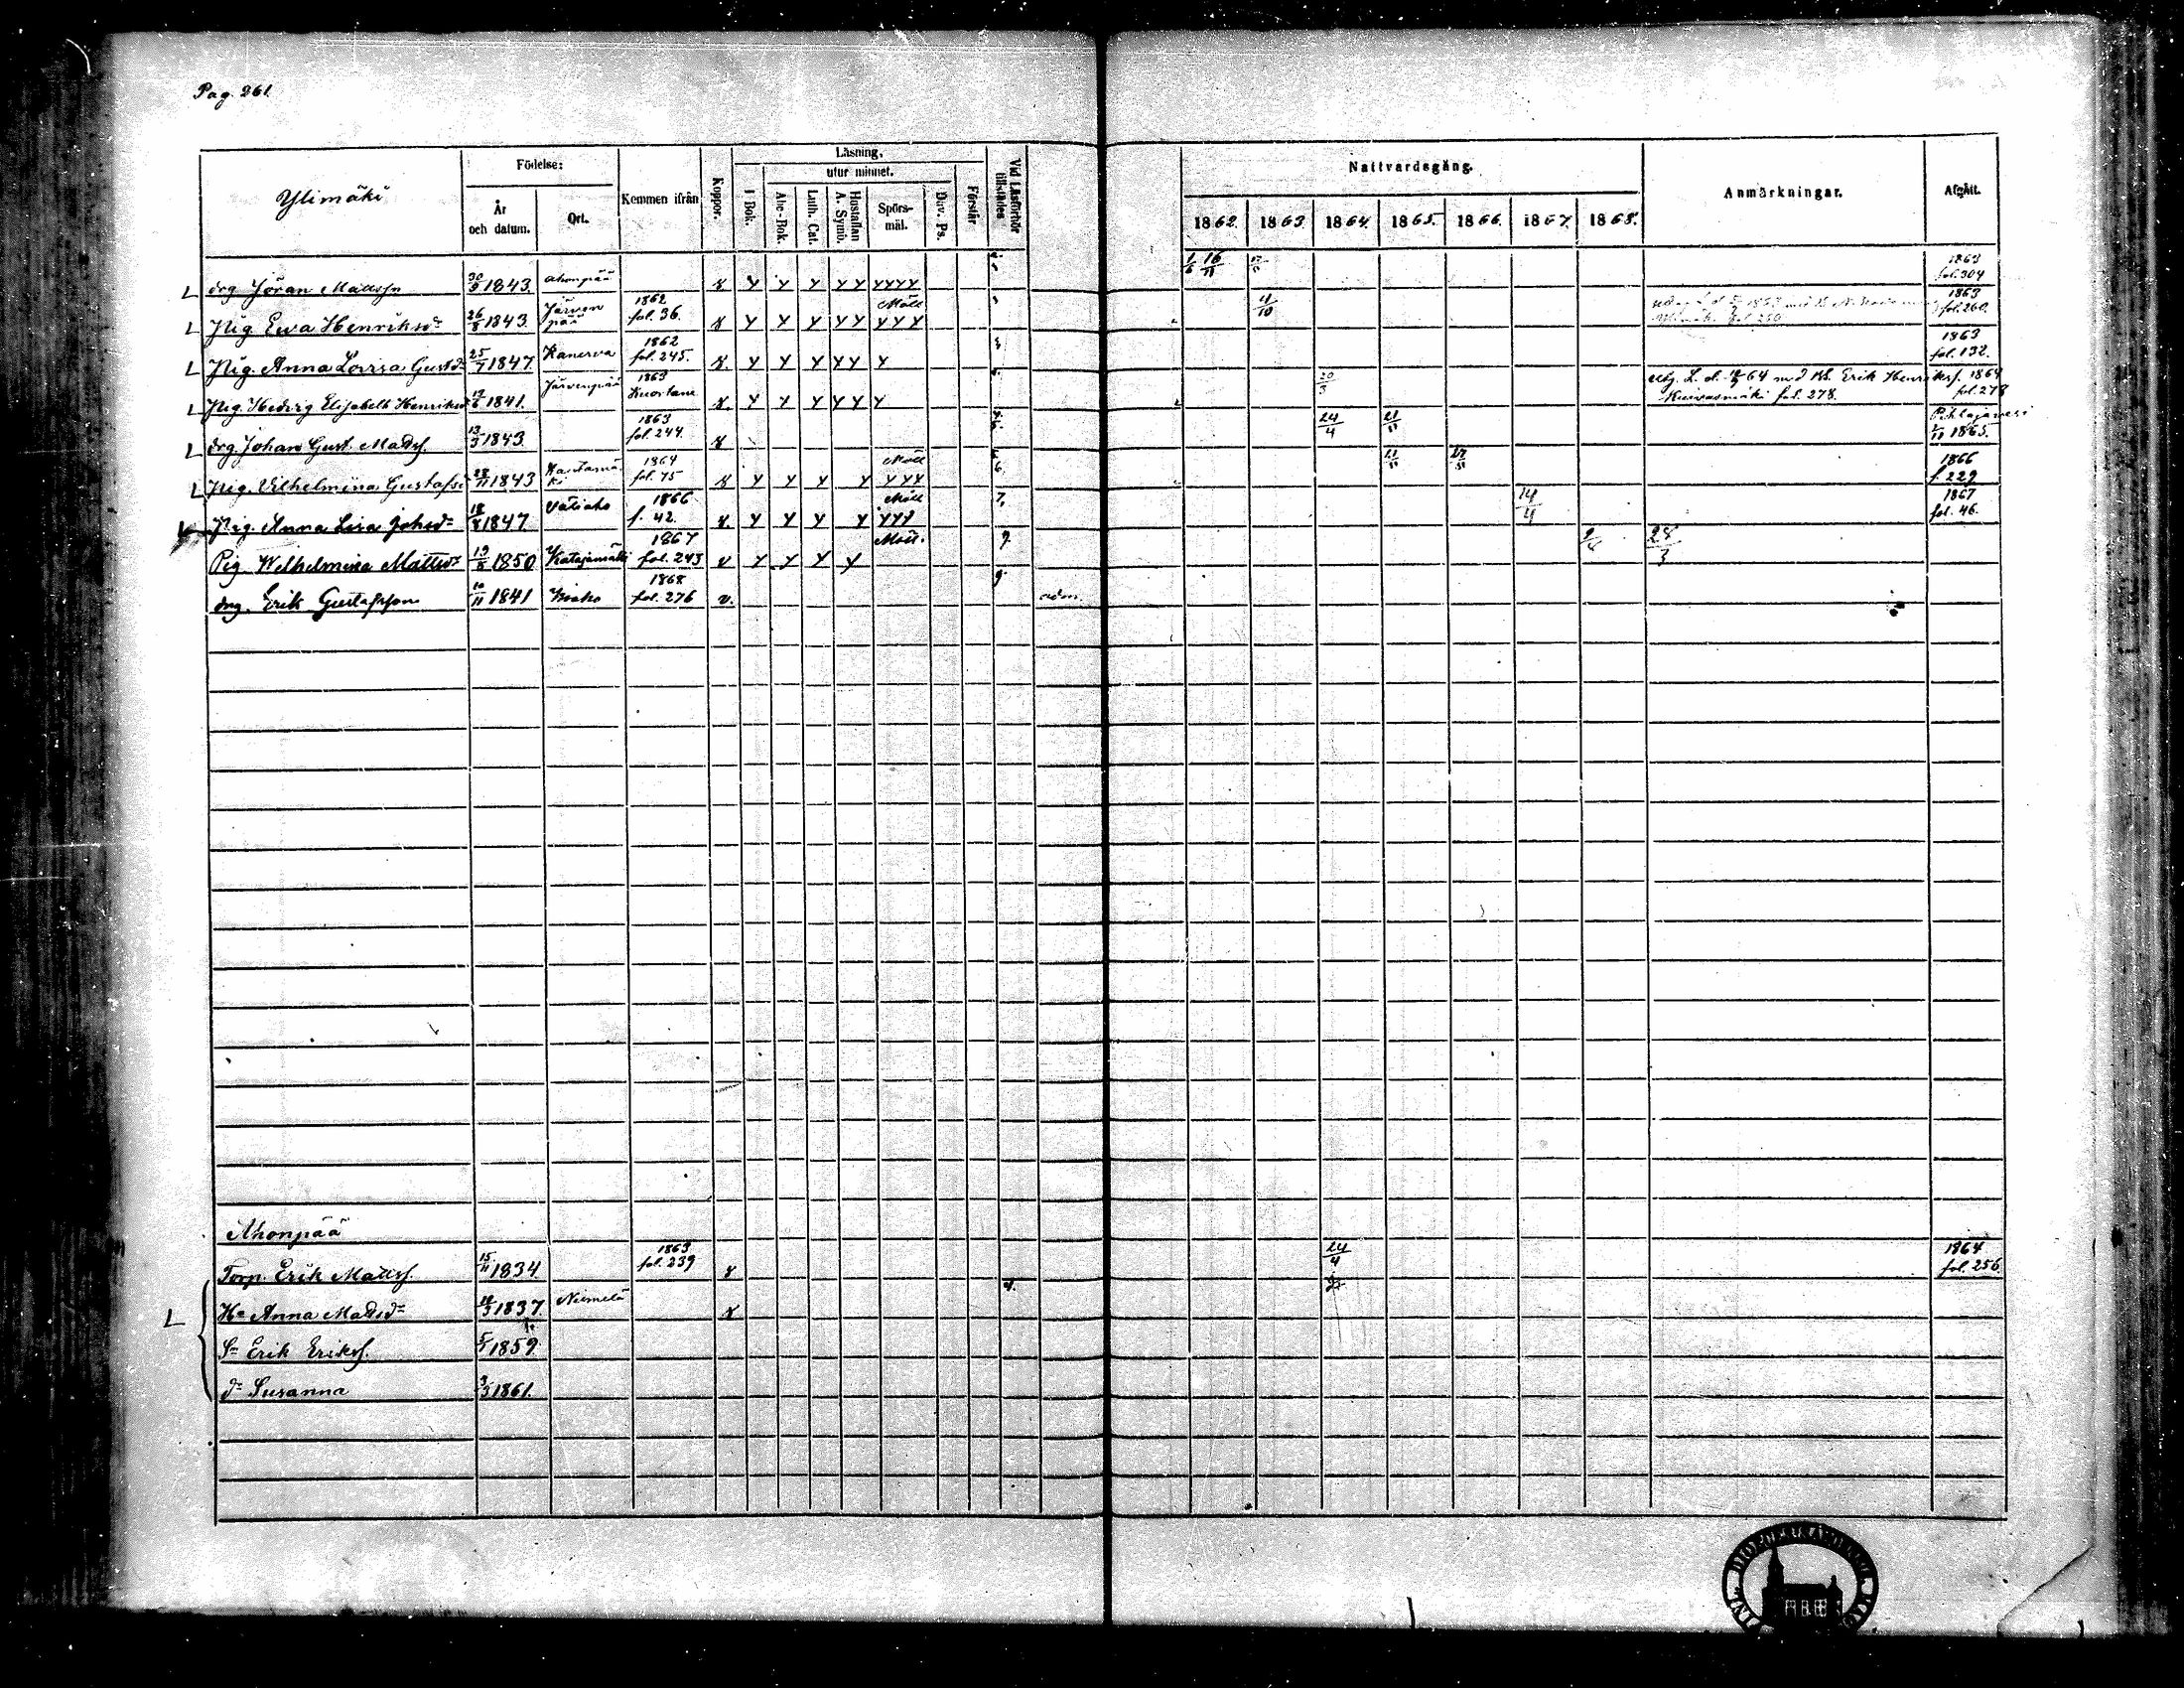 Pag. 261
Ylimäki
Födelse:
År och datum.
Ort.
Kommen ifrån
Koppor.
Läsning,
utur minnet.
I Bok.
Abc-Bok.
Luth. Cat.
Hustaflan A. Symb.
Spörs-mål.
Dav. Ps.
Förstår
Vid Läsförhör tillstädes
Nattvardsgång.
1862. 1863. 1864. 1865. 1866. 1867. 1868.
Anmärkningar.
Afgått.
drg Jöran Mattsfn 30/9 1843. Ahonpää x y y y y y y y y y 1/6 16/11 1863 fol. 304
Pig. Ewa Henriksdr 26/8 1843. Järvenpää 1862 fol. 36. x y y y y y Möll y y y 4/10 1863 fol. 260.
Pig. Anna Lovisa Gustdr 25/7 1847. Kanerva 1862 fol. 245. x y y y y y y 1863 fol. 132.
Pig. Hedvig Elisabeth Henriksdr 1841. Järvenpää 1863 Kuortane x. y y y y y y 20/3 Utg. L. d. 64 med Bs. Erik Henriksf. Kuivasmäki fol. 278. 1864 fol. 278
drg. Johan Gust. Mattsf. 13/3 1843. 1863 fol. 244. x 24/4 21/11 Pihlajavesi 1865.
Pig. Vilhelmina Gustafsd 28/11 1843 1864 fol. 75 x y y y y Möll y y y 6. 21/11 1866 f. 229
Pig. Anna Lisa Johsdr 18/8 1847. Väliaho 1866 f. 42. x. y y y y Möll y y y 7. 14/4 1867 fol. 46.
Pig. Wilhelmina Mattsdr 19/8 1850 Katajamäki 1867 fol. 243 v y y y y Möll. 9 2/4 28/3
drg. Erik Gustafsson 10/11 1841 1868 fol. 276 v. 9 adm.
Ahonpää
Torp. Erik Mattsf. 15/11 1834. 1863 fol. 239 x 24/4 1864 fol. 256.
Hu Anna Mattsdr 1837. Niemelä x 4.
Sn Erik Eriksf. 1859.
dr Susanna 3/3 1861.